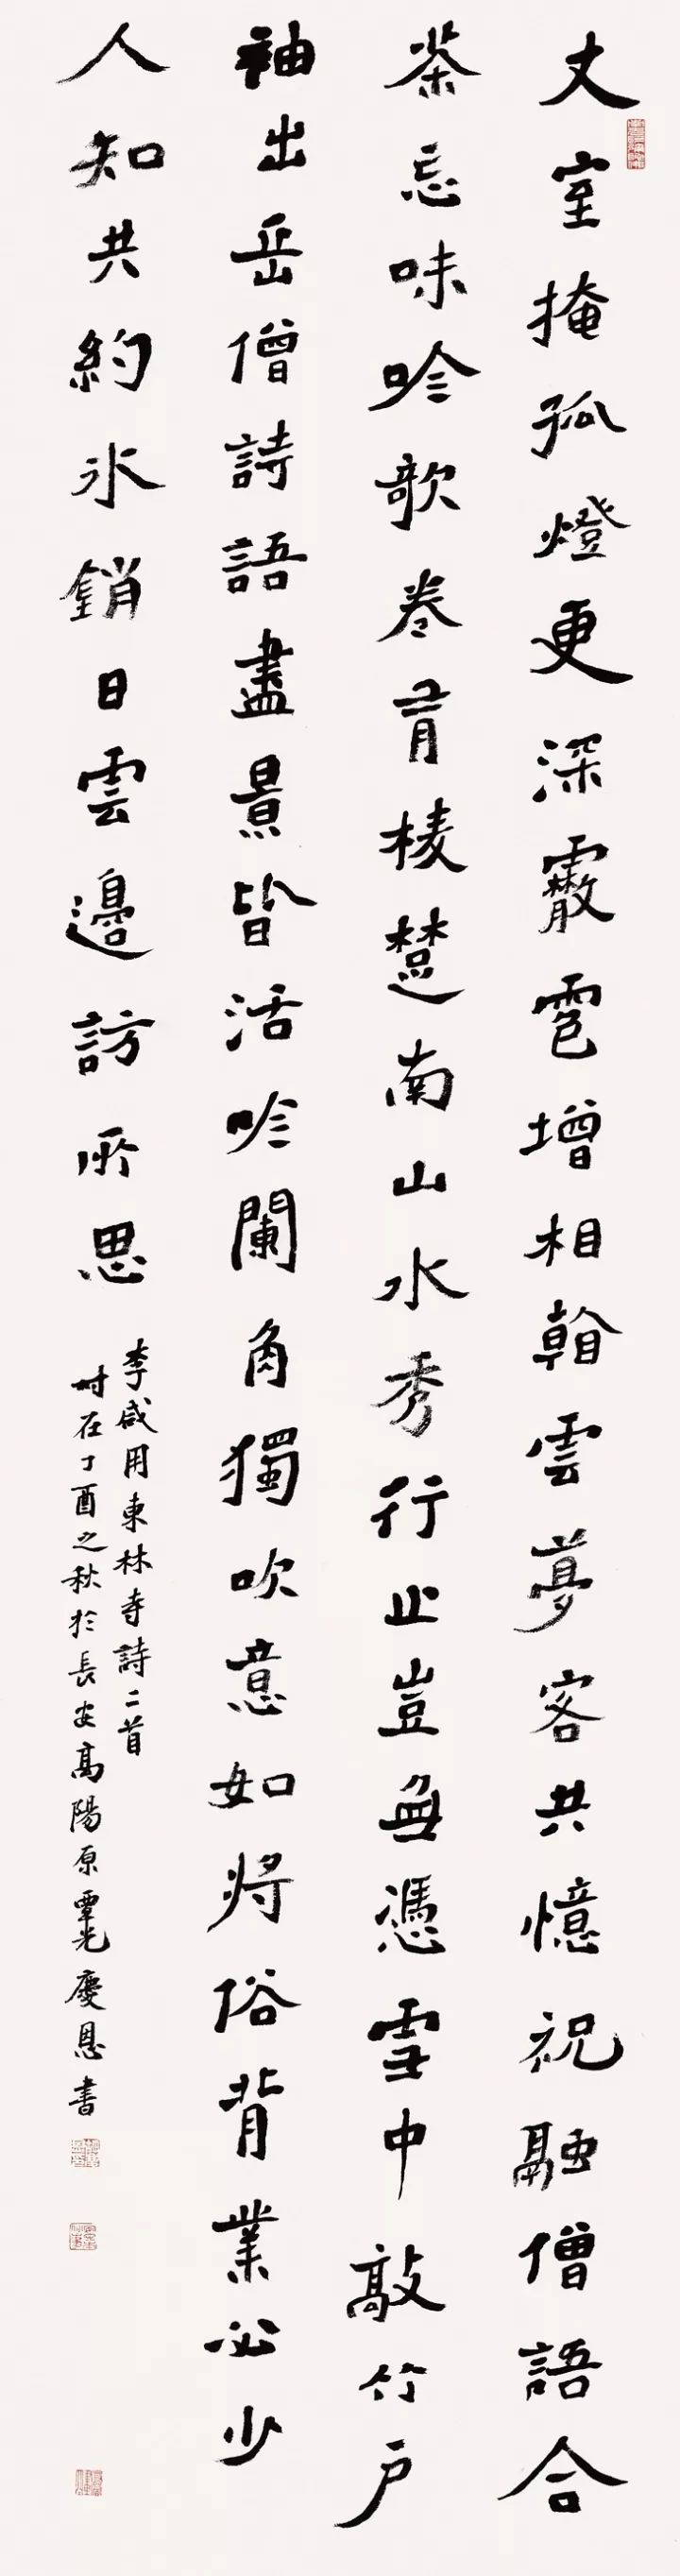 丈室掩孤燈更深霰雹增相看雲夢客共憶祝融僧語合
茶忘味吟欹卷有棱楚南山水秀行止豈無憑雪中敲竹戶
袖出岳僧詩語盡景皆活吟闌角獨吹意如將俗背業必少
人知共約氷銷日雲邊訪所思
李咸用東林寺詩二首
时在丁酉之秋於長安高陽原慶恩書